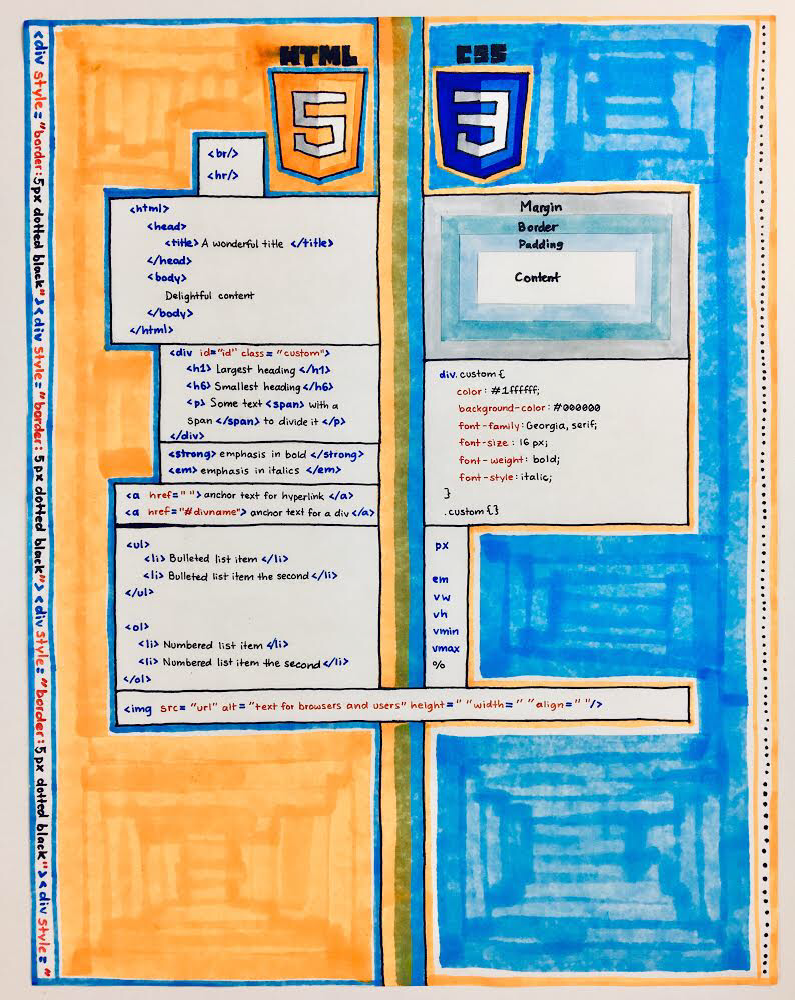 <div style="border:5px dotted black"><div style="border:5px dotted black"><div style="border:5px dotted black"><div style="
HTML
5
<br/>
<hr/>
<html>
<head>
<title> A wonderful title </title>
</head>
<body>
Delightful content
</body>
</html>
<div id="id" class="custom">
<h1> Largest heading </h1>
<h6> Smallest heading </h6>
<p> Some text <span> with a
span </span> to divide it </p>
</div>
<strong> emphasis in bold </strong>
<em> emphasis in italics </em>
<a href=" "> anchor text for hyperlink </a>
<a href="#divname"> anchor text for a div </a>
<ul>
<li> Bulleted list item </li>
<li> Bulleted list item the second </li>
</ul>
<ol>
<li> Numbered list item </li>
<li> Numbered list item the second </li>
</ol>
<img src="url" alt="text for browsers and users" height=" " width=" " align=" "/>
CSS
3
Margin
Border
Padding
Content
div.custom {
color: #1ffffff;
background-color: #000000
font-family: Georgia, serif;
font-size: 16 px;
font-weight: bold;
font-style: italic;
}
.custom {}
px
em
vw
vh
vmin
vmax
%